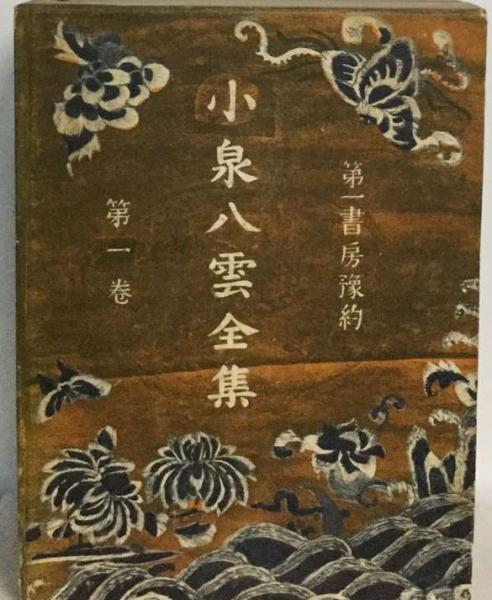 第一書房豫約
小泉八雲全集
第一卷